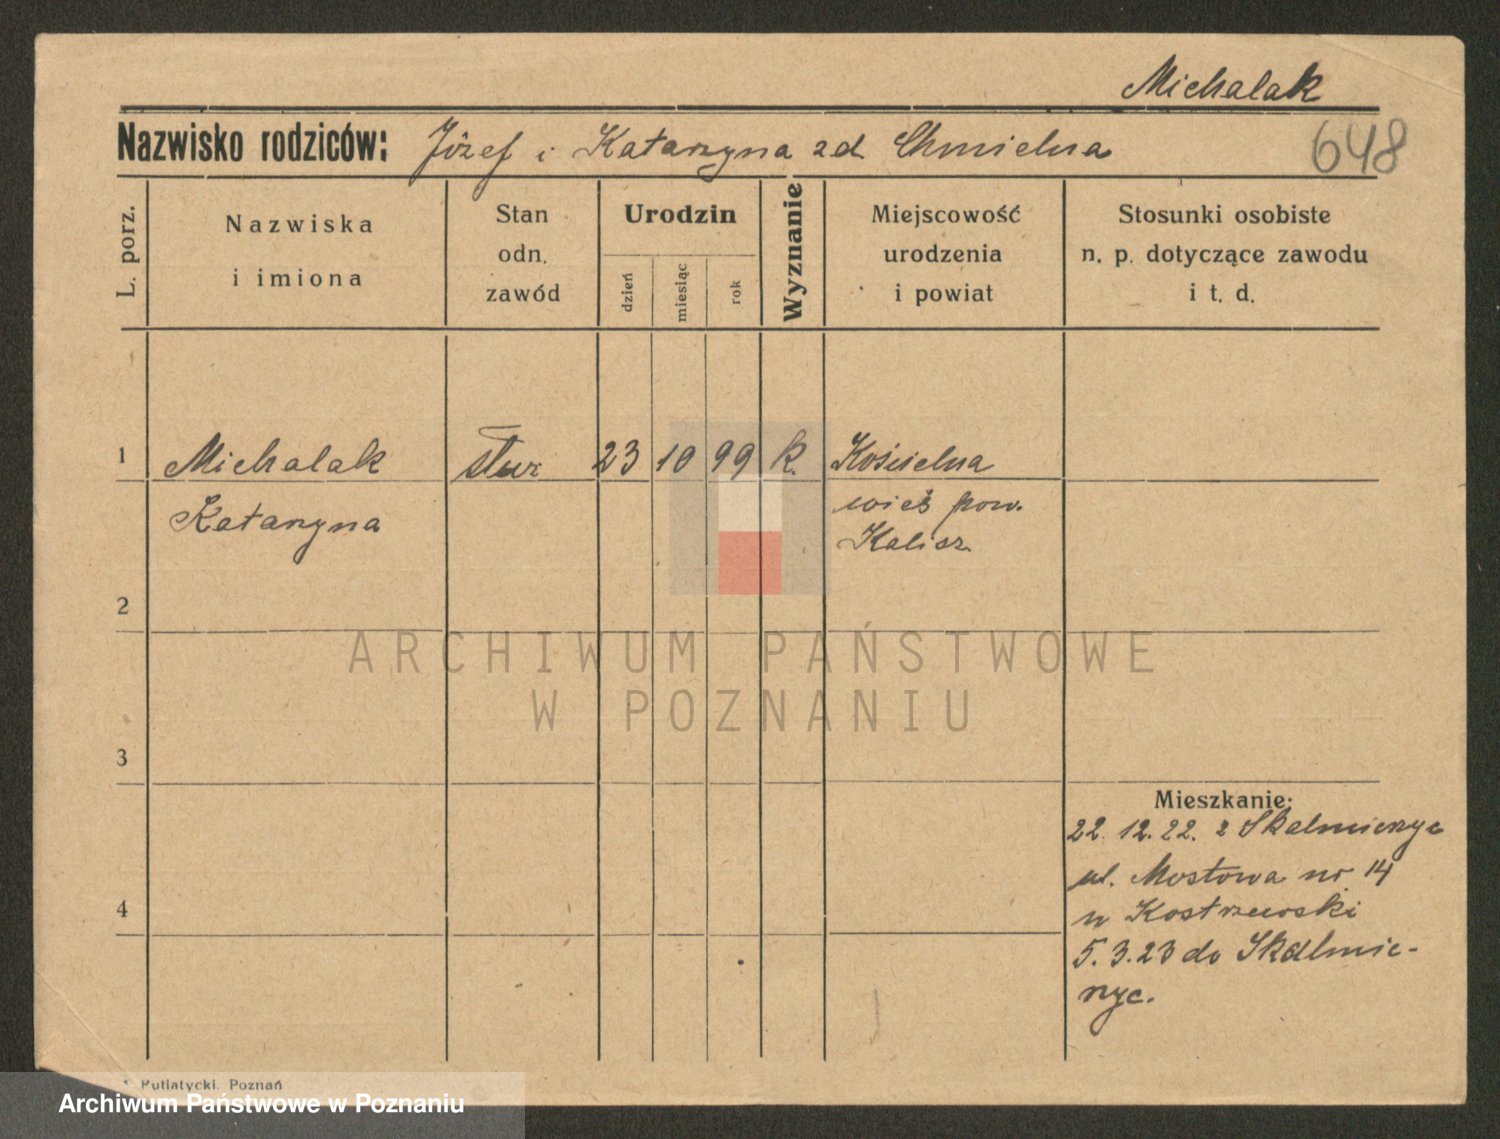 Michalak
Nazwisko rodziców: Józef i Katarzyna zd. Chmielna
648
L. porz.
Nazwiska
i imiona
Stan
odn.
zawód
Urodzin
dzień
miesiąc
rok
Wyznanie
Miejscowość
urodzenia
i powiat
Stosunki osobiste
n. p. dotyczące zawodu
i t. d.
1 Michalak 23 10 99 k. Kościelna
Katarzyna wieś pow.
Kalisz
2
ARCHIWUM PAŃSTWOWE
W POZNANIU
3
Mieszkanie:
22. 12. 22. z Skalmierzyc
ul. Mostowa nr 14
u Kostrzewski
4
5. 3. 23 do Skalmie-
rzyc.
Putiatycki, Poznań
Archiwum Państwowe w Poznaniu